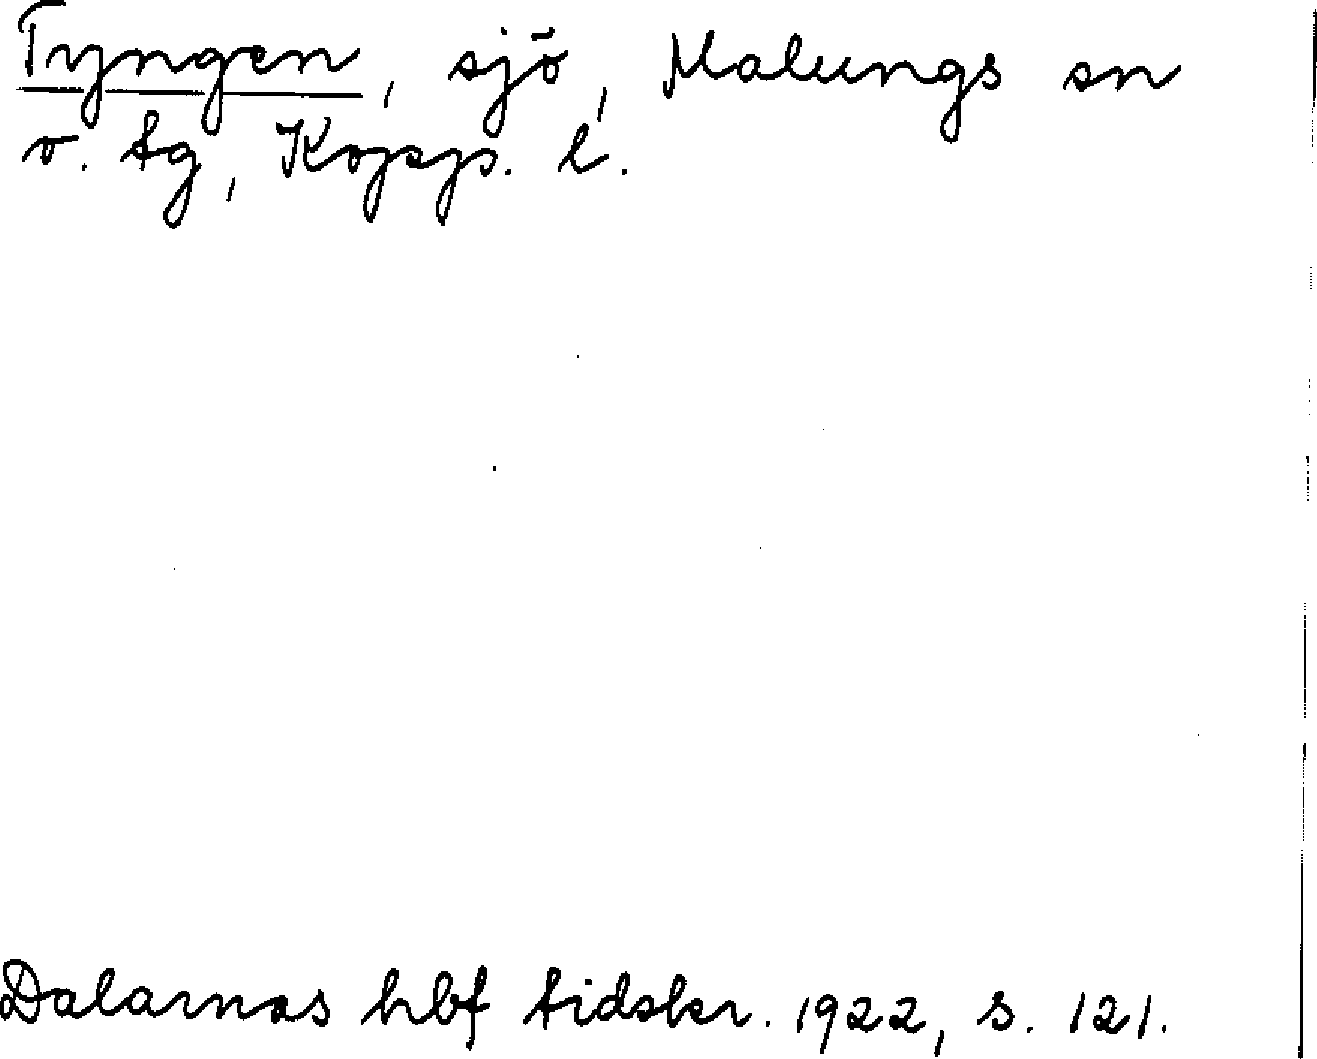 Tyngen, sjö, Malungs sn
o. tg, Kopp. l.
Dalarnas hbf tidskr. 1922, s. 121.